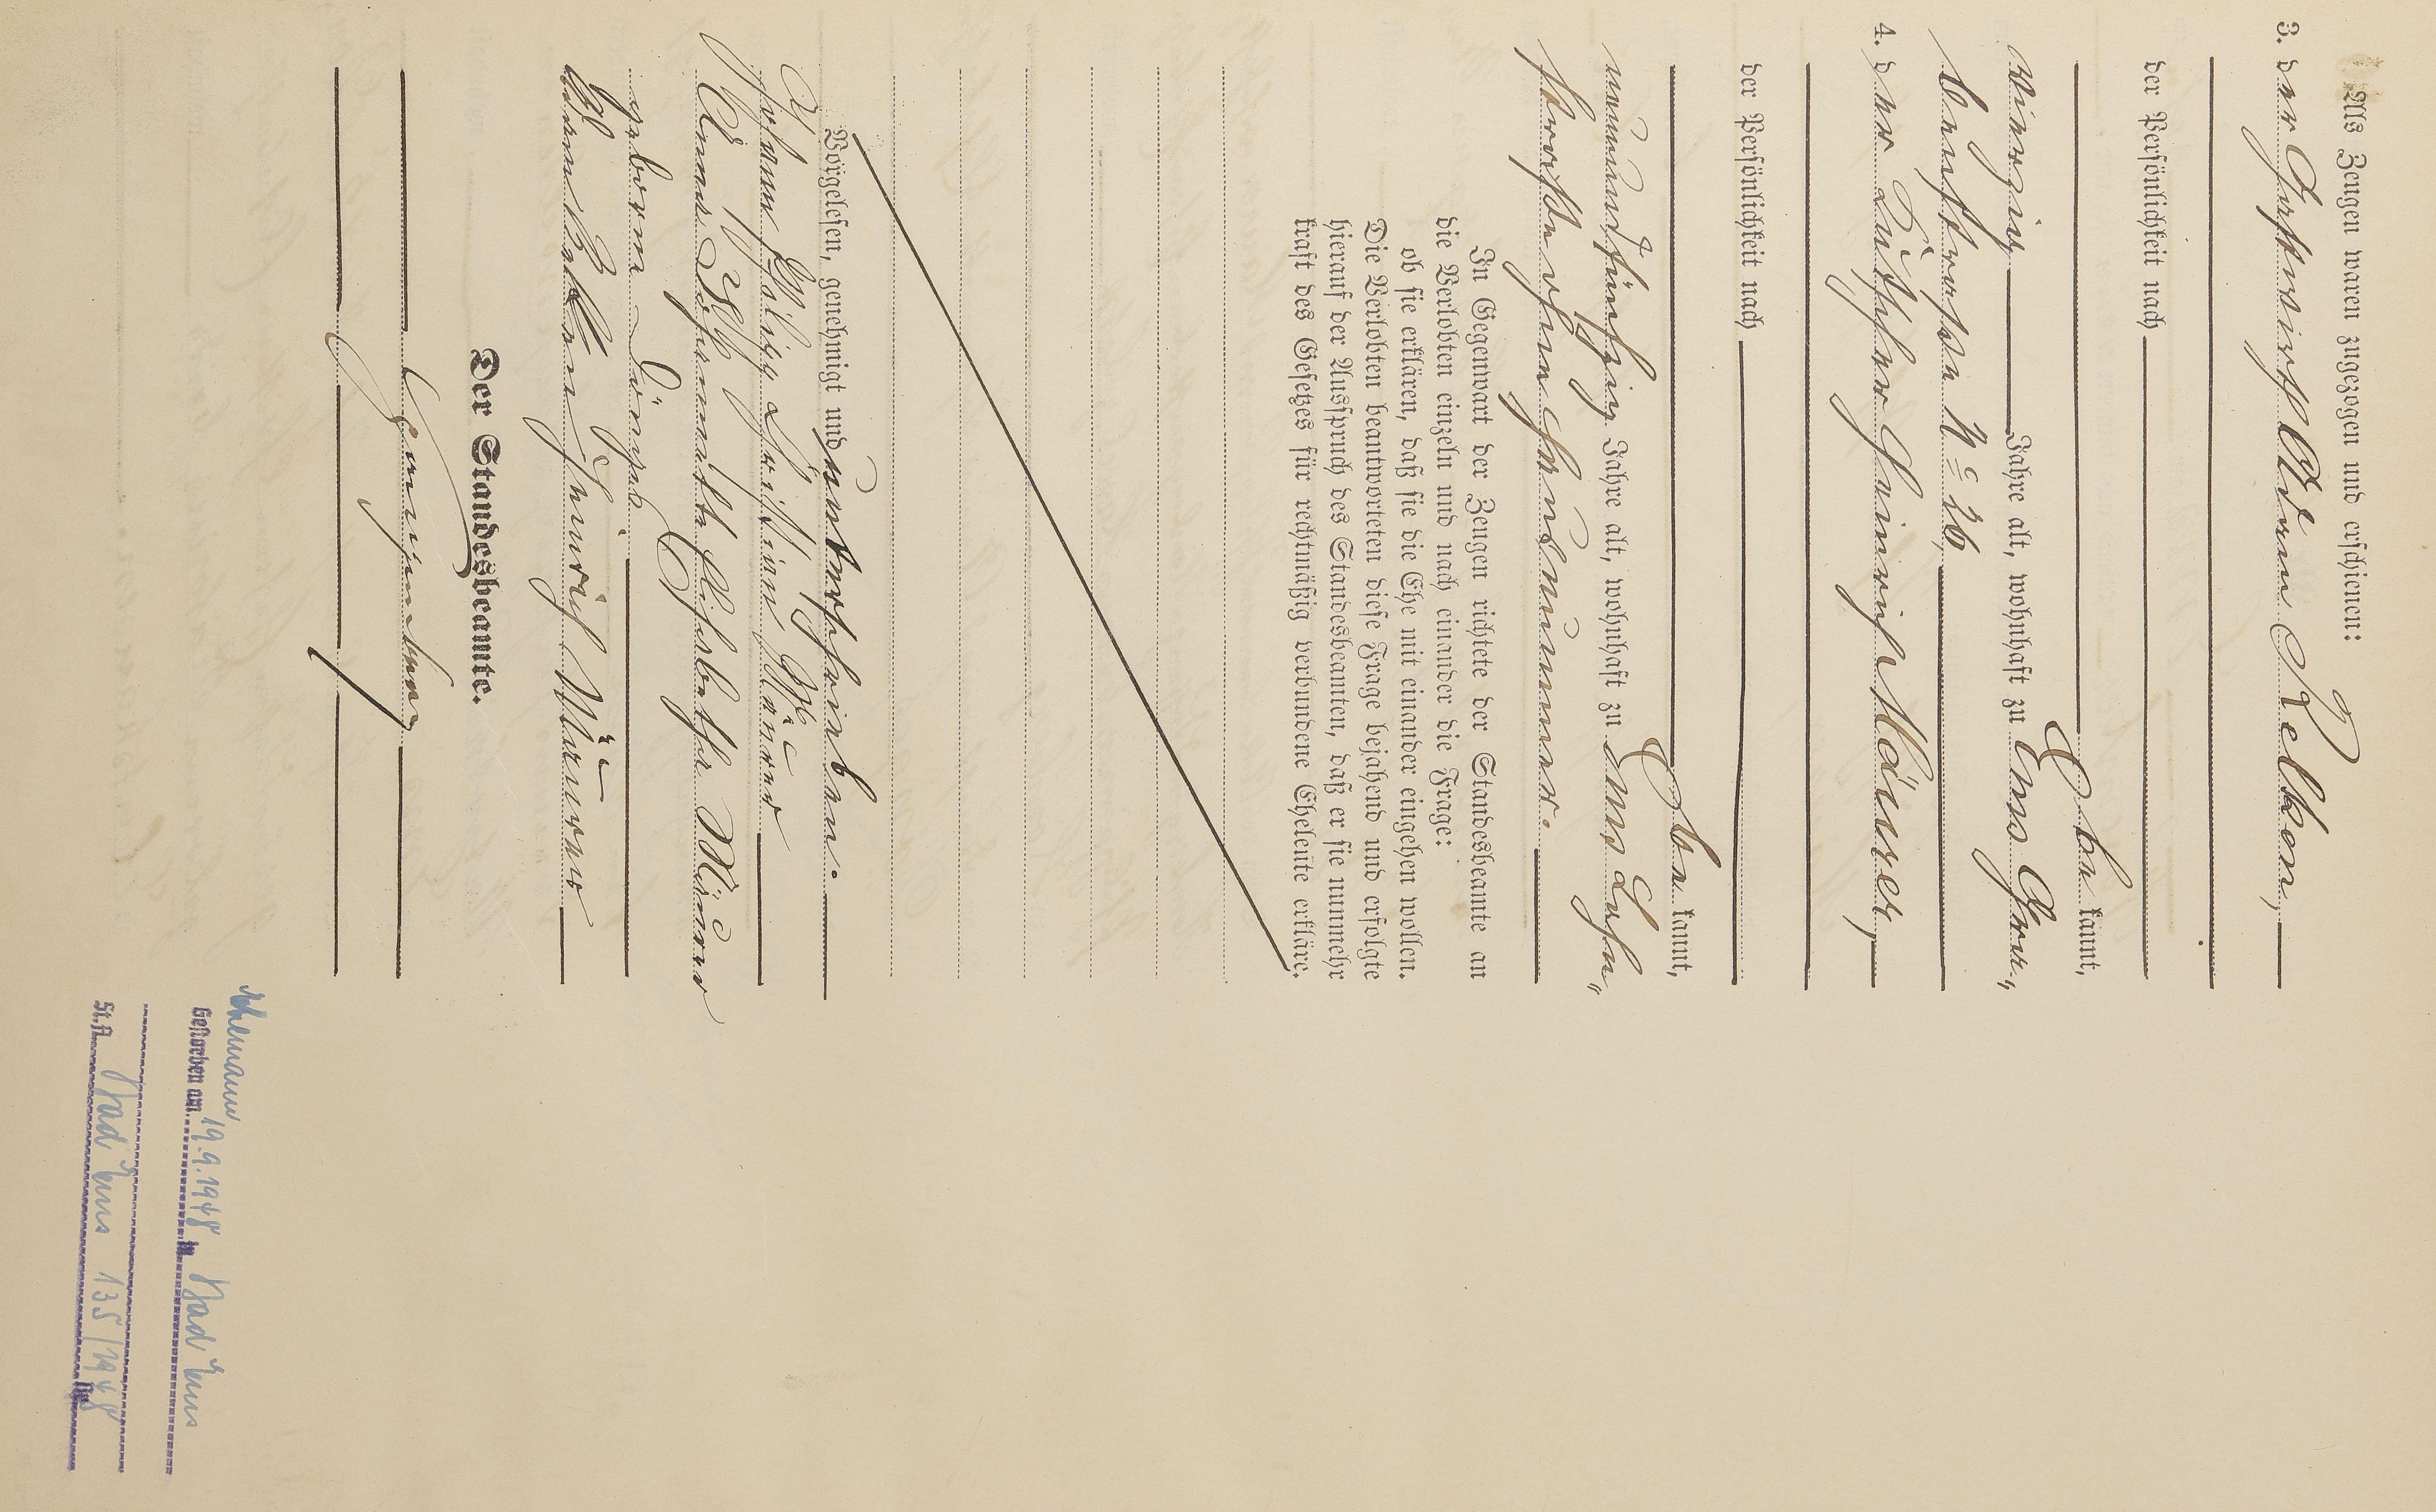 Als Zeugen waren zugezogen und erschienen:
3. der Gastwirth Adam Kelken,
der Persönlichkeit nach
be kannt,
vierzig Jahre alt, wohnhaft zu Ems Gra„
benstraße No 26,
4. der Küfer Heinrich Mäurer,
der Persönlichkeit nach
be kannt,
neunundfünfzig Jahre alt, wohnhaft zu Ems Lahn„
straße ohne Hausnummer.
In Gegenwart der Zeugen richtete der Standesbeamte an
die Verlobten einzeln und nach einander die Frage:
ob sie erklären, daß sie die Ehe mit einander eingehen wollen.
Die Verlobten beantworteten diese Frage bejahend und erfolgte
hierauf der Ausspruch des Standesbeamten, daß er sie nunmehr
kraft des Gesetzes für rechtmäßig verbundene Eheleute erkläre.
Vorgelesen, genehmigt und unterschrieben.
Johann Philipp Christian Mäurer
Anna Johannette Elisabethe Mäurer
geborene
Adam Kelken Heinrich Mäurer
Der Standesbeamte.
Ehemann
Gestorben am 19.9.1948 in Bad Ems
St.A. Bad Ems 135/1948